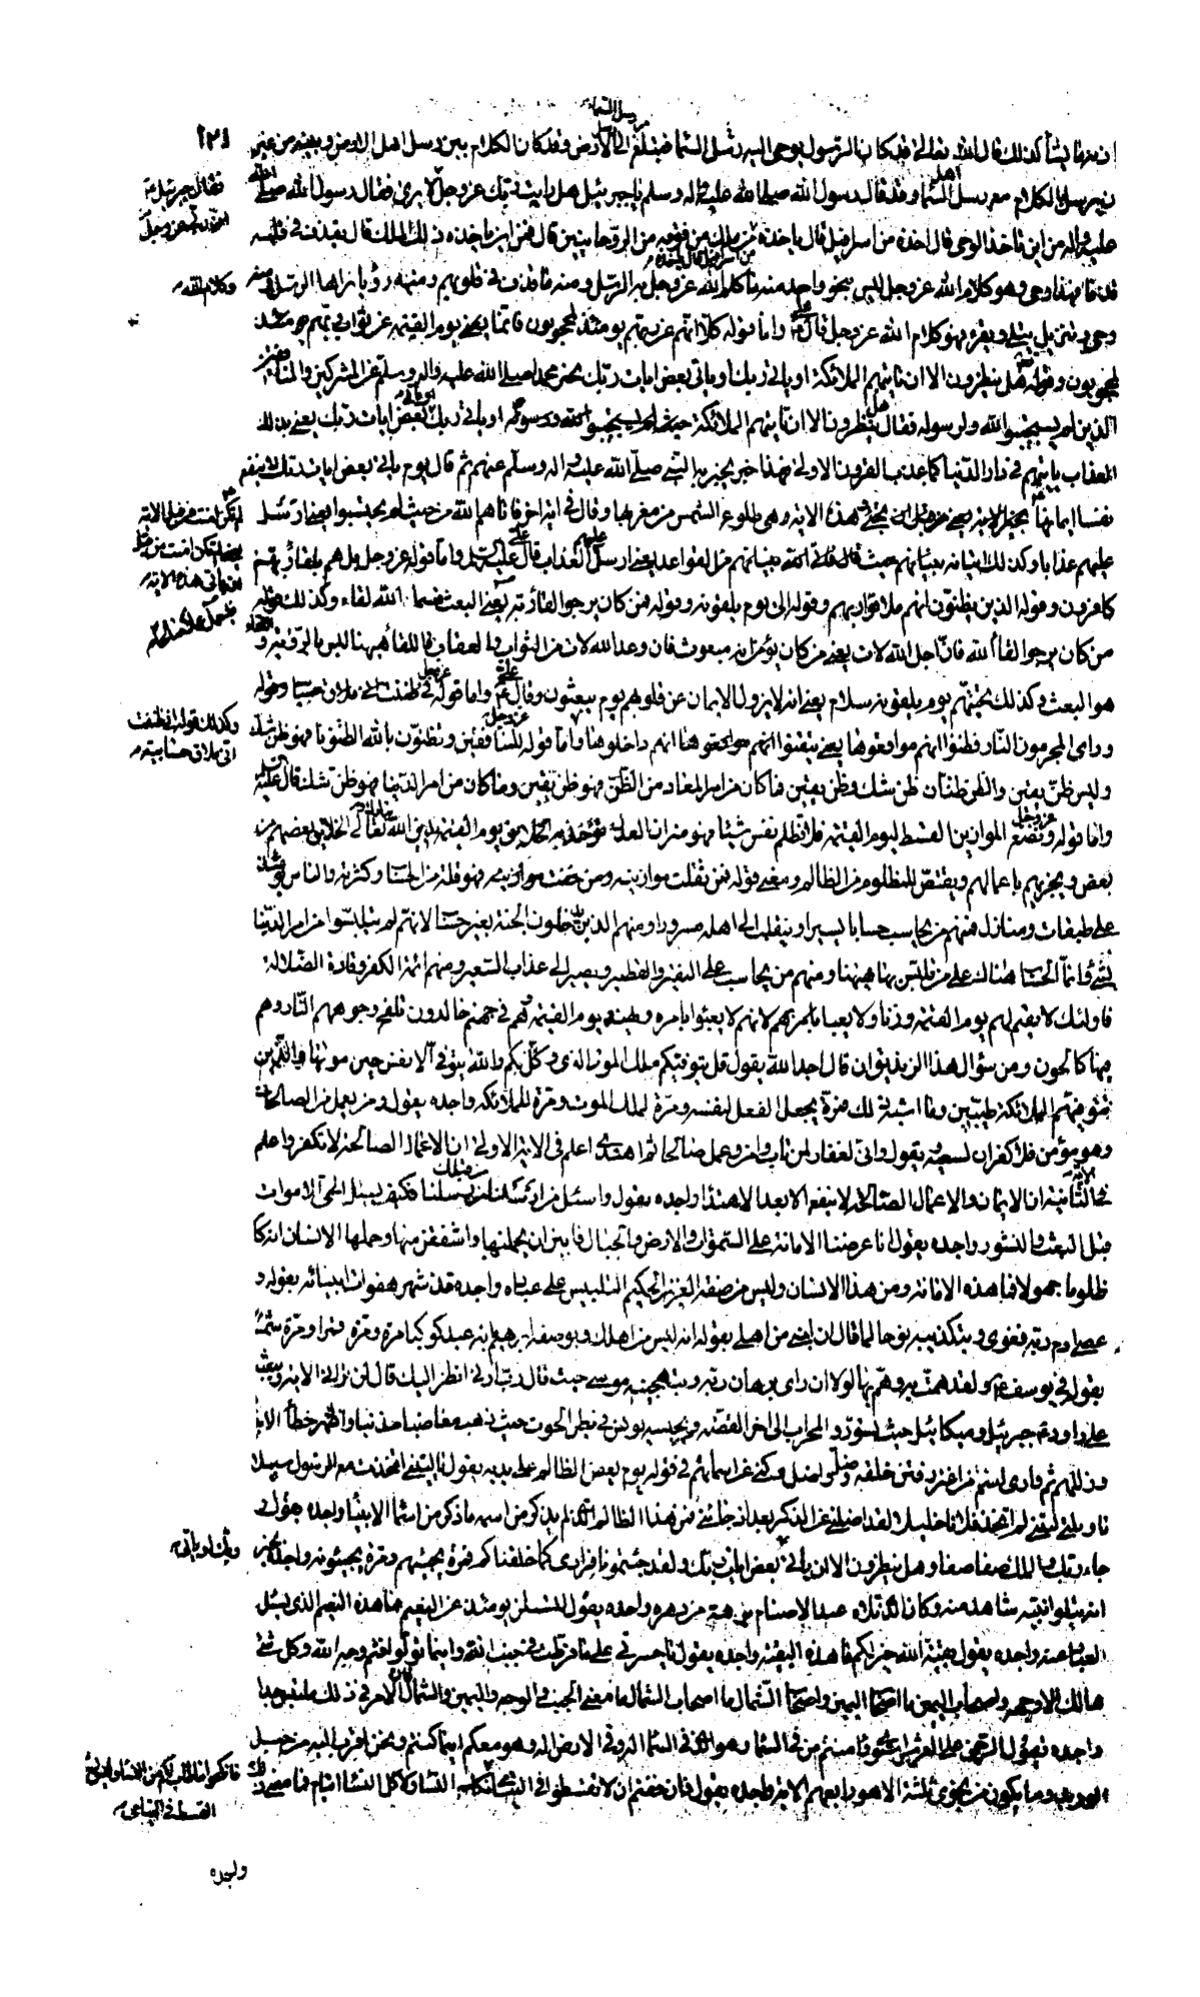 من رسل السماء
١٢١
ان نبيها يشأ كذلك قال الله تعالى قد كان الرسول يوحى اليه رسل السماء فيبلغ الى الارض وقد كان الكلام بين رسل اهل الارض وبينه من غير
ان يرسل الكلام مع رسل اهل السماء وقد قال رسول الله صلى الله عليه واله وسلم يا جبرئيل هل رايت ربك عز وجل لا يرى فقال رسول الله صلى الله
فقال جبرئيل
عليه واله من اين تاخذ الوحى قال اخذه من اسرافيل قال ياخذه من ملك من فوقه من الروحانيين قال فمن اين ياخذه ذلك الملك قال يقذف فى قلبه
قذفا فهذا وحى وهو كلام الله عز وجل ليس بنحو واحد منه ما كلم الله عز وجل به الرسل ومنه ما قذف فى قلوبهم ومنه رؤيا يراها الرسل ومنه
وكلام الله
وحى وتنزيل يتلى ويقرء فهو كلام الله عز وجل قال واما قوله كلا انهم عن ربهم يومئذ لمحجوبون فانما يعنى يوم القيمة عن ثواب ربهم يومئذ
لمحجوبون وقوله هل ينظرون الا ان تاتيهم الملائكة او ياتى ربك او ياتى بعض ايات ربك يخبر محمدا صلى الله عليه واله وسلم عن المشركين والمنافقين
الذين لم يستجيبوا لله ولرسوله فقال هل ينظرون الا ان تاتيهم الملائكة حيث لم يستجيبوا لله ورسوله او ياتى ربك او ياتى بعض ايات ربك يعنى بذلك
العذاب ياتيهم فى دار الدنيا كما عذب القرون الاولى فهذا خبر يخبر به النبى صلى الله عليه واله وسلم عنهم ثم قال يوم ياتى بعض ايات ربك لا ينفع
نفسا ايمانها هذه الاية وهى طلوع الشمس من مغربها وقال فى اية اخرى فاتاهم الله من حيث لم يحتسبوا يعنى ارسل
عليهم عذابا وكذلك اتيانه بنيانهم حيث قال فاتى الله بنيانهم من القواعد يعنى ارسل عليهم العذاب قال واما قوله عز وجل بل هم بلقاء ربهم
كافرون وقوله الذين يظنون انهم ملاقوا ربهم وقوله الى يوم يلقونه وقوله فمن كان يرجو لقاء ربه يعنى البعث فسماه الله لقاء وكذلك قوله
من كان يرجو لقاء الله فان اجل الله لات يعنى من كان يؤمن انه مبعوث فان وعد الله لات من الثواب والعقاب فاللقاء هيهنا ليس بالرؤية و
هو البعث وكذلك تحيتهم يوم يلقونه سلام يعنى انه لا يزول الايمان عن قلوبهم يوم يبعثون وقال واما قوله عز وجل انى ظننت انى ملاق حسابيه وقوله
وكذلك قوله انى ظننت
انى ملاق حسابيه
وراى المجرمون النار فظنوا انهم مواقعوها يعنى تيقنوا انهم مواقعوها انهم داخلوها واما قوله عز وجل للمنافقين وتظنون بالله الظنونا فهو ظن شك
وليس ظن يقين والظن ظنان ظن شك وظن يقين فما كان من امر المعاد من الظن فهو ظن يقين وما كان من امر الدنيا فهو ظن شك قال
واما قوله عز وجل ونضع الموازين القسط ليوم القيمة فلا تظلم نفس شيئا فهو ميزان العدل يؤخذ به الخلايق يوم القيمة يدين الله تعالى الخلايق بعضهم من
بعض ويجزيهم باعمالهم ويقتص للمظلوم من الظالم ومعنى قوله فمن ثقلت موازينه ومن خفت موازينه فهو قلة من الحساب وكثرته والناس يومئذ
على طبقات ومنازل فمنهم من يحاسب حسابا يسيرا وينقلب الى اهله مسرورا ومنهم الذين يدخلون الجنة بغير حساب لانهم لم يتلبسوا من امر الدنيا
بشىء وانما الحساب هناك على من تلبس بها هيهنا ومنهم من يحاسب على النقير والقطمير ويصير الى عذاب السعير ومنهم ائمة الكفر وقادة الضلالة
فاولئك لا يقيم لهم يوم القيمة وزنا ولا يعبا بامرهم لانهم لا يعبئوا بامره ونهيه ويوم القيمة هم فى جهنم خالدون تلفح وجوههم النار وهم
فيها كالحون ومن سؤال هذا الزنديق ان قال اجد الله يقول قل يتوفيكم ملك الموت الذى وكل بكم والله يتوفى الانفس حين موتها والذين
تتوفيهم الملائكة طيبين وما اشبه ذلك فمرة يجعل الفعل لنفسه ومرة لملك الموت ومرة للملائكة واجده يقول ومن يعمل من الصالحات
وهو مؤمن فلا كفران لسعيه ويقول وانى لغفار لمن تاب وامن وعمل صالحا ثم اهتدى اعلم فى الاية الاولى ان الاعمال الصالحة لا تكفر واعلم
فى الثانية ان الايمان والاعمال الصالحة لا ينفع الا بعد الاهتداء واجده يقول واسئل من ارسلنا من قبلك من رسلنا فكيف يسئل الحى الاموات
قبل البعث والنشور واجده يقول انا عرضنا الامانة على السموات والارض والجبال فابين ان يحملنها واشفقن منها وحملها الانسان انه كان
ظلوما جهولا فما هذه الامانة ومن هذا الانسان وليس من صفة العزيز الحكيم التلبيس على عباده واجده قد شهر هفوات انبيائه بقوله و
عصى ادم ربه فغوى وبتكذيبه نوحا لما قال ان ابنى من اهلى بقوله انه ليس من اهلك وبوصفه ابرهيم انه عبد كوكبا مرة ومرة قمرا ومرة شمسا
بقوله فى يوسف ولقد همت به وهم بها لولا ان راى برهان ربه وبتهجينه موسى حيث قال رب ارنى انظر اليك قال لن ترانى الاية وببعثه
على داود جبرئيل وميكائيل حيث تسوروا المحراب الى اخر القصة وبحبسه يونس فى بطن الحوت حيث ذهب مغاضبا مذنبا واظهر خطأ الانبياء
وزللهم ثم وارى اسم من اغتر وفتن خلقه وضل واضل وكنى عن اسمائهم فى قوله يوم يعض الظالم على يديه يقول يا ليتنى اتخذت مع الرسول سبيلا
يا ويلتى ليتنى لم اتخذ فلانا خليلا لقد اضلنى عن الذكر بعد اذ جائنى فمن هذا الظالم الذى لم يذكر من اسمه ما ذكر من اسماء الانبياء واجده يقول
جاء ربك والملك صفا صفا وهل ينظرون الا ان ياتى بعض ايات ربك ولقد جئتمونا فرادى كما خلقناكم فمرة يجيئهم ومرة يجيئونه واجده يخبر
انه يتلو نبيه شاهد منه وكان الذى تلاه عبد الاصنام برهة من دهره واجده يقول لتسئلن يومئذ عن النعيم فما هذه النعيم الذى يسئل
العباد عنه واجده يقول بقية الله خير لكم ما هذه البقية واجده يقول يا حسرتى على ما فرطت فى جنب الله واينما تولوا فثم وجه الله وكل شىء
هالك الا وجهه واصحاب اليمين ما اصحاب اليمين واصحاب الشمال ما اصحاب الشمال ما معنى الجنب والوجه واليمين والشمال فان الامر فى ذلك ملتبس جدا
واجده يقول الرحمن على العرش استوى وامنتم من فى السماء وهو الذى فى السماء اله وفى الارض اله وهو معكم اينما كنتم ونحن اقرب اليه من حبل
الوريد وما يكون من نجوى ثلثة الا هو رابعهم الاية واجده يقول فان خفتم ان لا تقسطوا فى اليتامى النساء ولا كل النساء ايتام فما معنى ذلك
القسط فى اليتامى
واجده